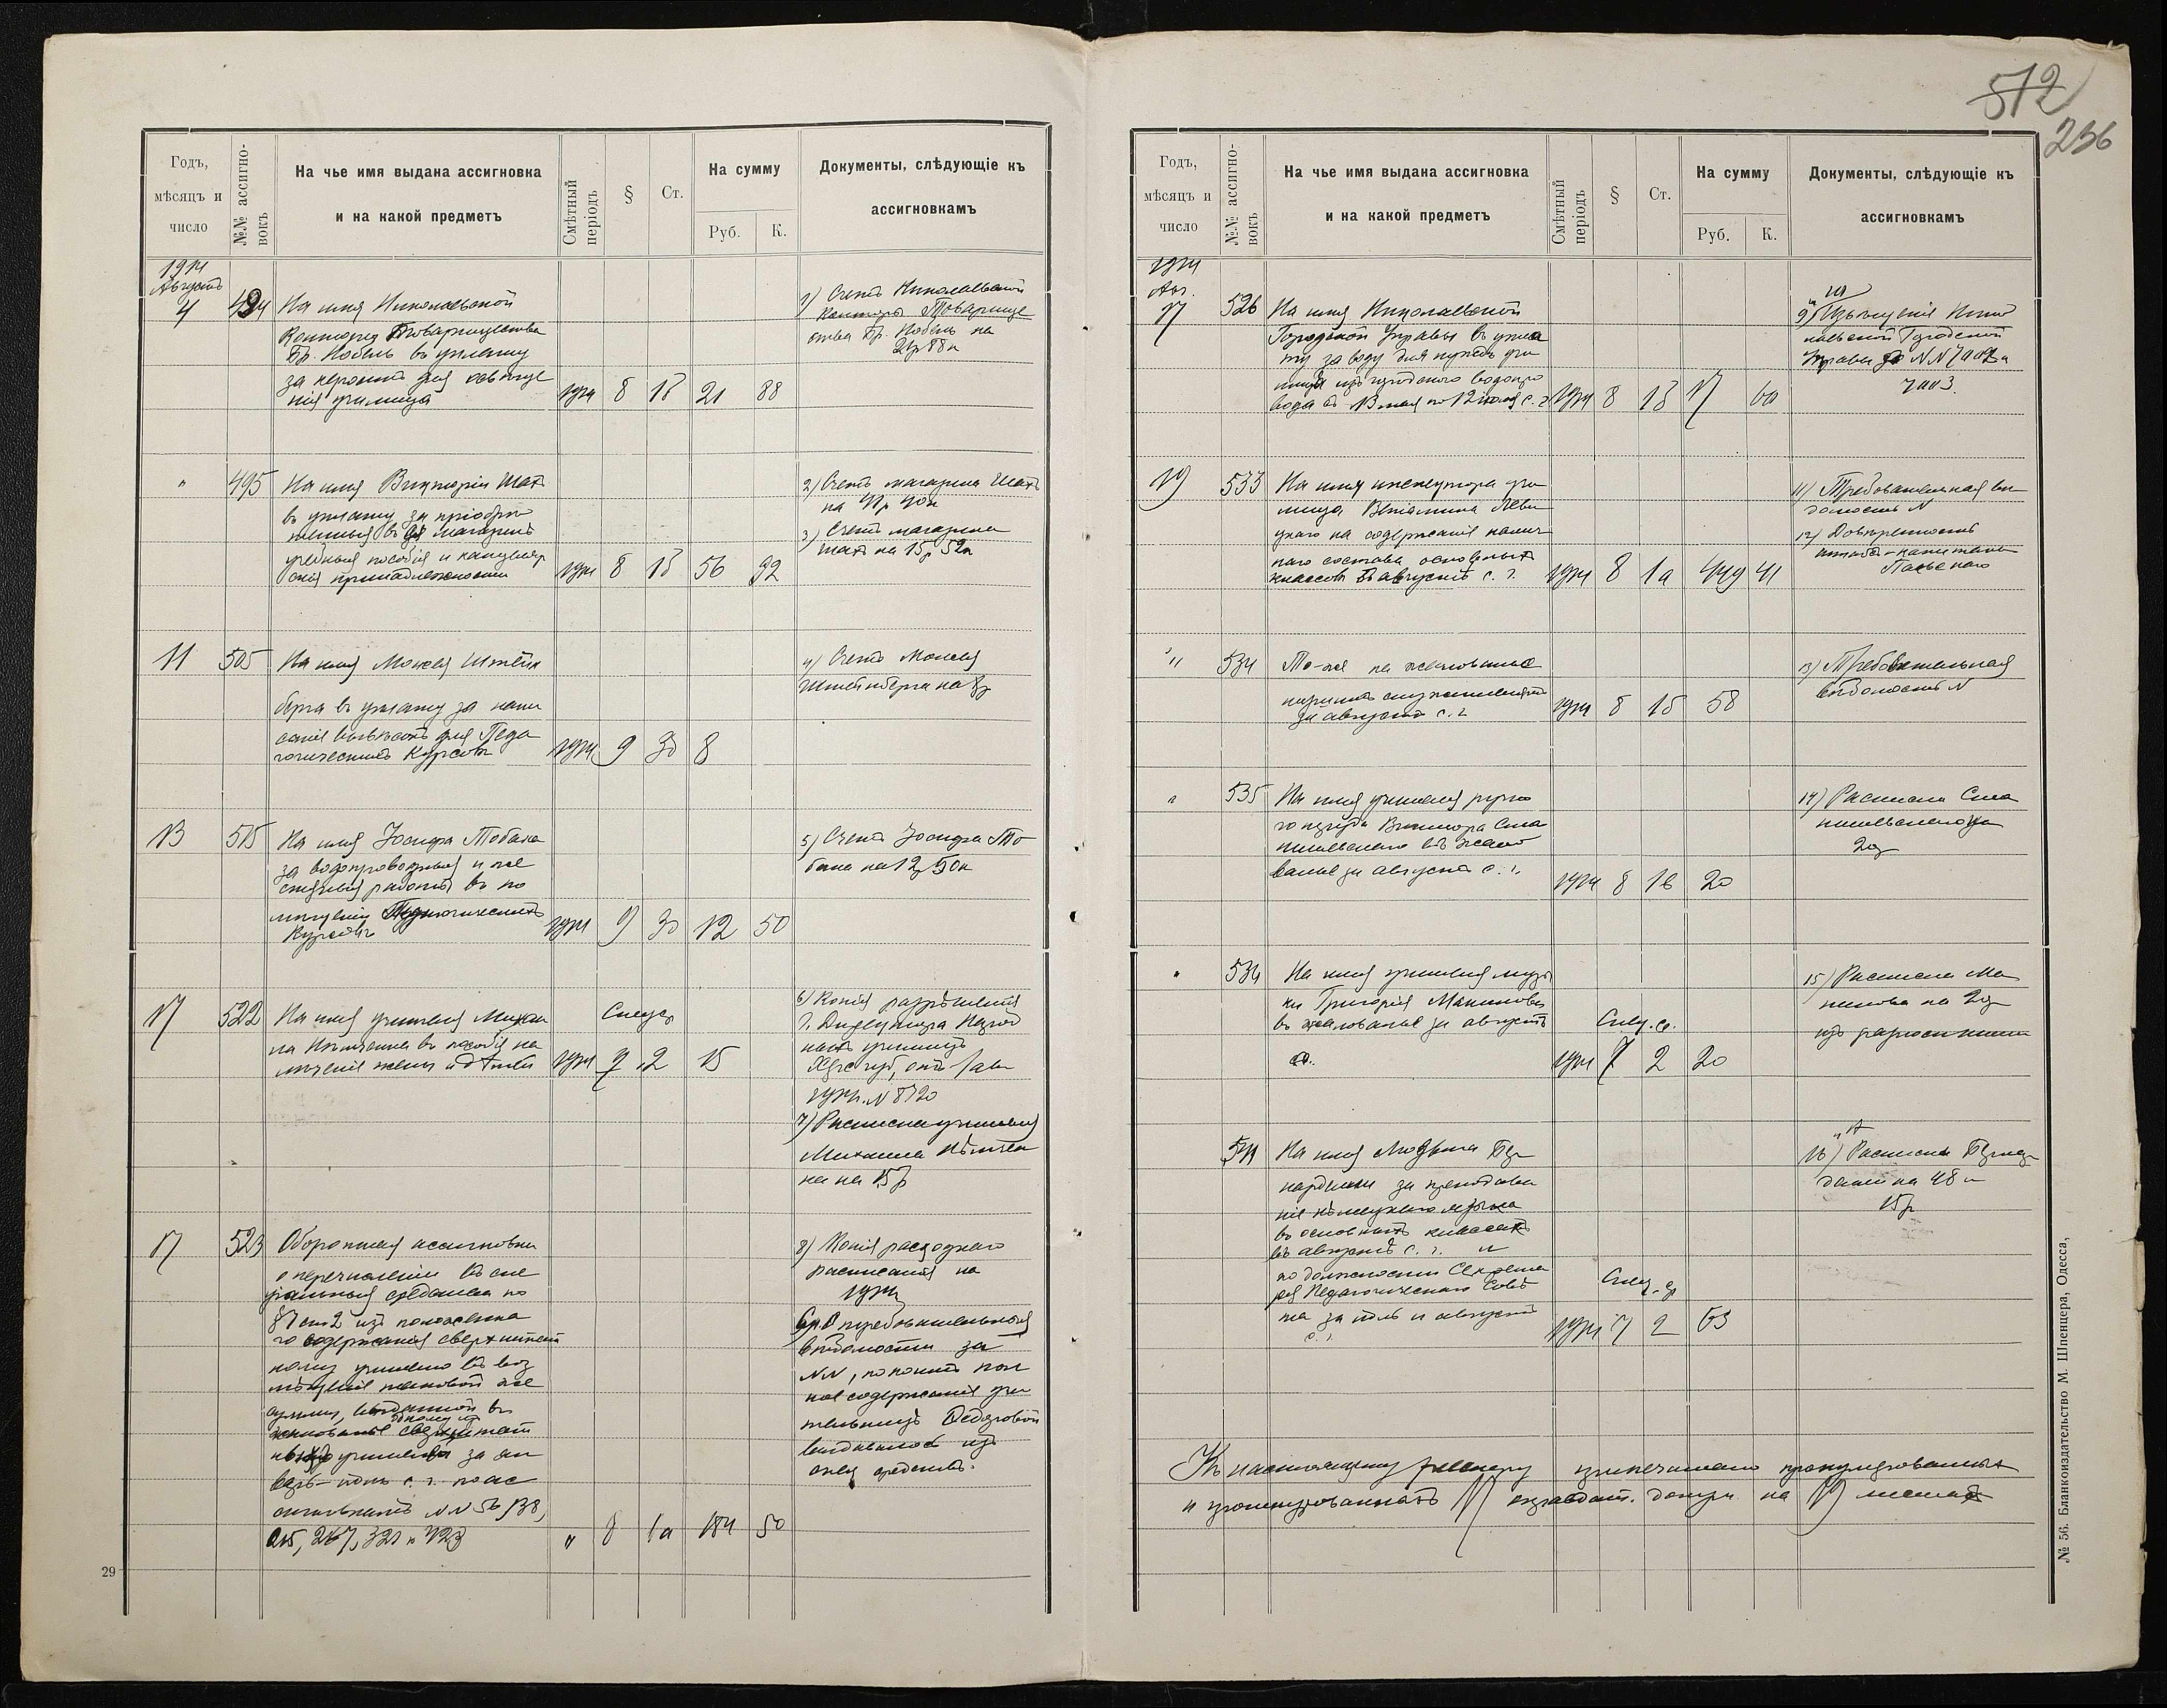 572
236
Годъ,
мѣсяцъ и
число
№№ ассигно-
вокъ
На чье имя выдана ассигновка
и на какой предметъ
Смѣтный
періодъ
§
Ст.
На сумму
Руб.
К.
Документы, слѣдующіе къ
ассигновкамъ
1914
Августъ
4
494
На имя Николаевской
Конторы Товарищества
Бр. Нобель въ уплату
за керосинъ для освѣще
нія училища
1914 8 1б 21 88
1) Счетъ Николаевской
Конторы Товарище
ства Бр. Нобель на
21р 88к
"
495
На имя Викторіи Шахъ
въ уплату за пріобрѣ
тенныя въ ея магазинѣ
учебныя пособія и канцеляр
скія принадлежности
1914 8 1б 56 92
2) Счетъ магазина Шахъ
на 41р 40к
3) Счетъ магазина
Шахъ на 15р 52к
11
505
На имя Моисея Штейн
берга въ уплату за напи
саніе вывѣсокъ для Педа
гогическихъ Курсовъ
1914 9 3д 8
4) Счетъ Моисея
Штейнберга на 8р
13
515
На имя Іосифа Тобака
за водопроводныя и же
стяныя работы въ по
мѣщеніи Педагогическихъ
Курсовъ
1914 9 3д 12 50
5) Счетъ Іосифа То
бака на 12р 50к
17
522
На имя учителя Михаи
ла въ пособіе на
леченіе жены и дѣтей
Спец. ср
1914 7 2 15
6) Копія разрѣшенія
г. Директора Народ
ныхъ училищъ
Хер. губ, отъ 1 авг
1914 г. N 8720
7) Расписка учителя
Михаила
на на 15р
17
523
Оборотная ассигновка
о перечисленіи въ спе
ціальныя средства по
§7 ст 2 изъ положенна
го содержанія сверхштат
ному учителю въ воз
мѣщеніе таковой же
суммы, выданной въ
жалованье одному изъ сверхштат
ныхъ учителей за ап
рѣль - іюль с. г. по ас
сигновкамъ NN 56, 138,
215, 267, 321 и 423
" 8 1а 184 50
8) Копія расходнаго
расписанія на
1914
бр. 8 требовательныя
вѣдомости за
NN, по коимъ пол
ное содержаніе учи
тельницѣ Ѳедоровой
выдавалось изъ
спец средствъ.
29
Годъ,
мѣсяцъ и
число
№№ ассигно-
вокъ
На чье имя выдана ассигновка
и на какой предметъ
Смѣтный
періодъ
§
Ст.
На сумму
Руб.
К.
Документы, слѣдующіе къ
ассигновкамъ
1914
Авг.
17
526
На имя Николаевской
Городской Управы въ упла
ту за воду для нуждъ учи
лища изъ городского водопро
вода съ 13 мая по 12 іюля с. г
1914 8 1б 17 60
9 и 10) Извѣщенія Нико
лаевской Городской
Управы за NN 7002 и
7003
19
533
На имя инспектора учи
лища Веніамина Леви
цкаго на содержаніе налич
наго состава основныхъ
классовъ въ августѣ с. г.
1914 8 1а 449 41
11) Требовательная вѣ
домость N
12) Довѣренность
штабсъ-капитана
"
534
То-же на жалованье
нижнимъ служителямъ
за августъ с. г
1914 8 1б 58
13) Требовательная
вѣдомость N
"
535
На имя учителя ручно
го труда Виктора
въ жало
ванье за августъ с. г.
1914 8 1в 20
14) Расписка
20р
"
536
На имя учителя музы
ки Григорія Маникова
въ жалованье за августъ
с. г.
Спец. ср.
1914 7 2 20
15) Расписка Ма
никова на 20р
541
На имя Людвига Бер
нардацки за преподава
ніе нѣмецкаго языка
въ основныхъ классахъ
въ августѣ с. г. и
по должности Секрета
ря Педагогическаго Совѣ
та за іюль и августъ
с. г.
Спец. ср
1914 7 2 63
16 и 17) Расписки Бернар
дацки на 48 и
15р
Къ настоящему реестру припечатано пронумерованныхъ
и прошнурованныхъ 17 оправдат. докум. на 19 листахъ
№ 56. Бланкоиздательство М. Шпенцера, Одесса,